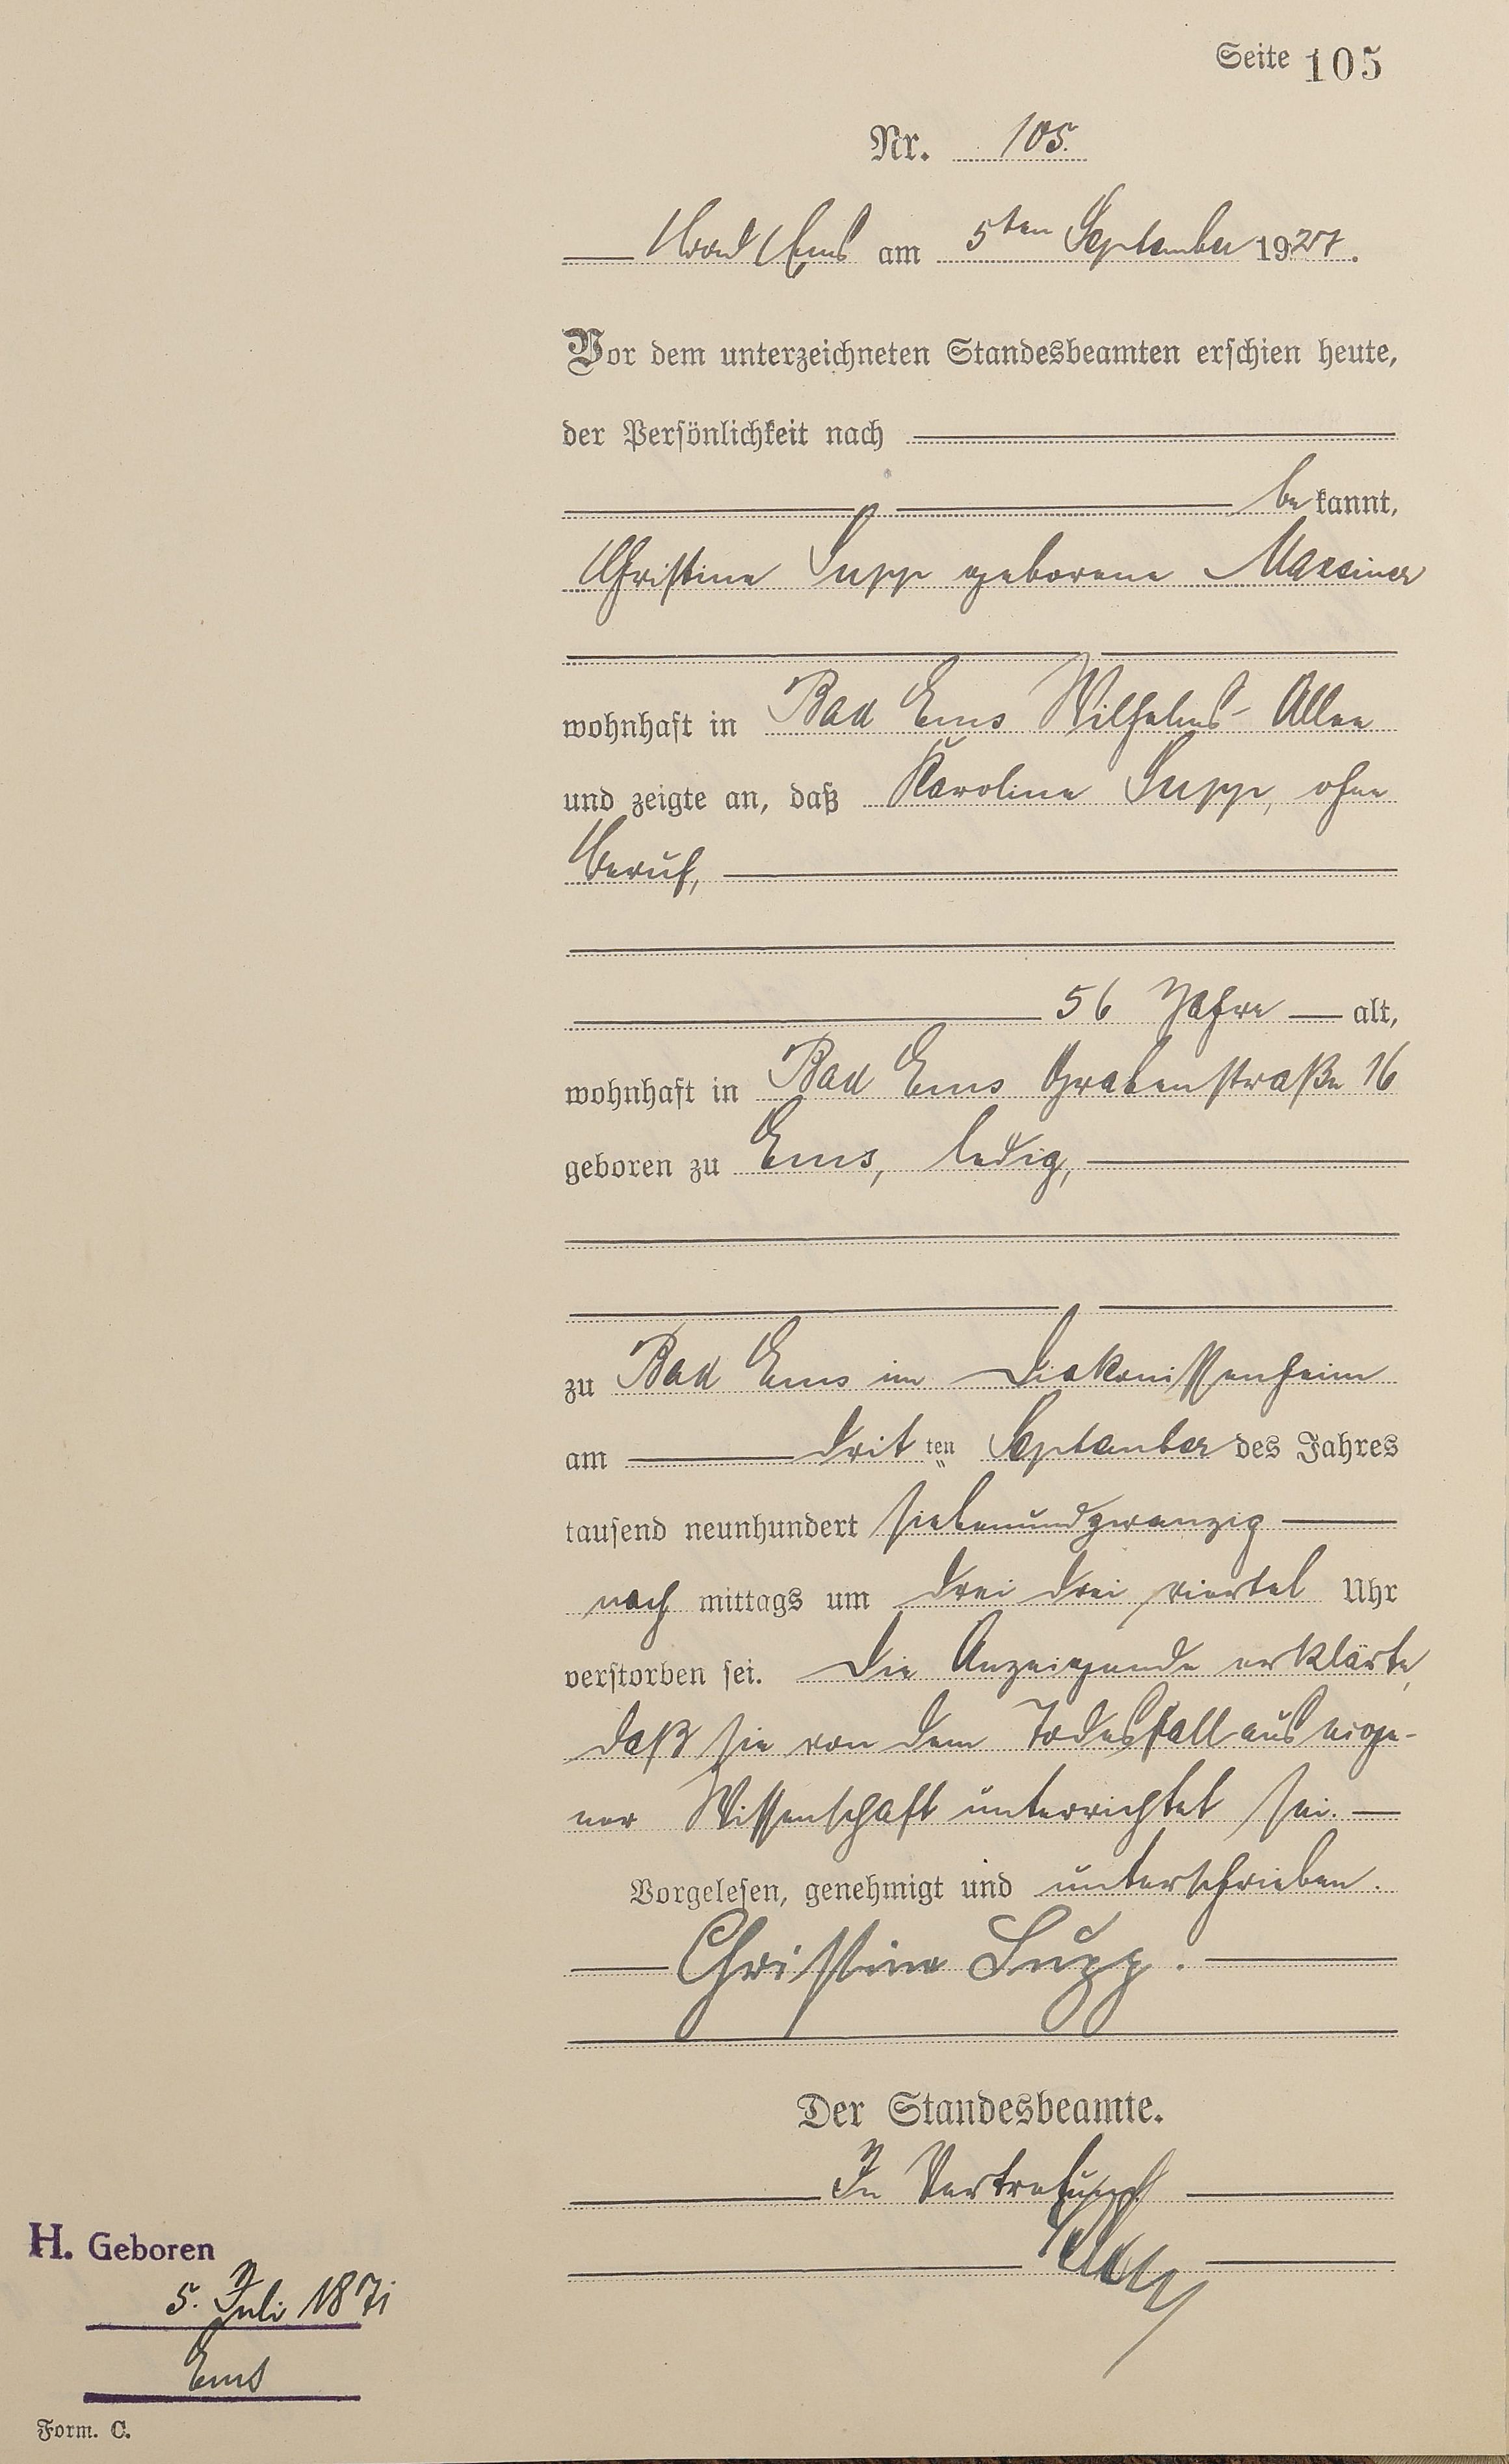 Seite 105
Nr. 105.
Bad Ems am 5ten September 1927.
Vor dem unterzeichneten Standesbeamten erschien heute,
der Persönlichkeit nach
bekannt,
Christine Supp geborene Maxeiner
wohnhaft in Bad Ems Wilhelms-Allee
und zeigte an, daß Karoline Supp, ohne
Beruf,
56 Jahre alt,
wohnhaft in Bad Ems Grabenstraße 16
geboren zu Ems, ledig,
zu Bad Ems im Diakonissenheim
am dritten September des Jahres
tausend neunhundert siebenundzwanzig
nachmittags um drei drei viertel Uhr
verstorben sei. Die Anzeigende erklärte,
daß sie von dem Todesfall aus eige-
ner Wissenschaft unterrichtet sei.
Vorgelesen, genehmigt und unterschrieben.
Christine Supp.
Der Standesbeamte.
In Vertretung
H. Geboren
5. Juli 1871
Ems
Form. C.